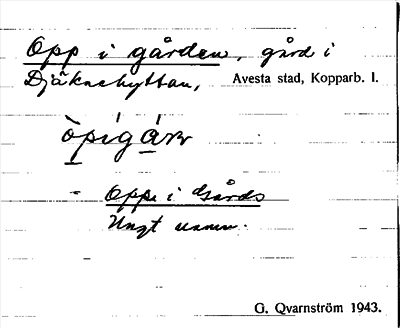 Opp i gården, gård i
Djäknehyttan, Avesta stad, Kopparb. l.
òpigáɹn
- Oppi Gårds
Ungt namn.
G. Qvarnström 1943.